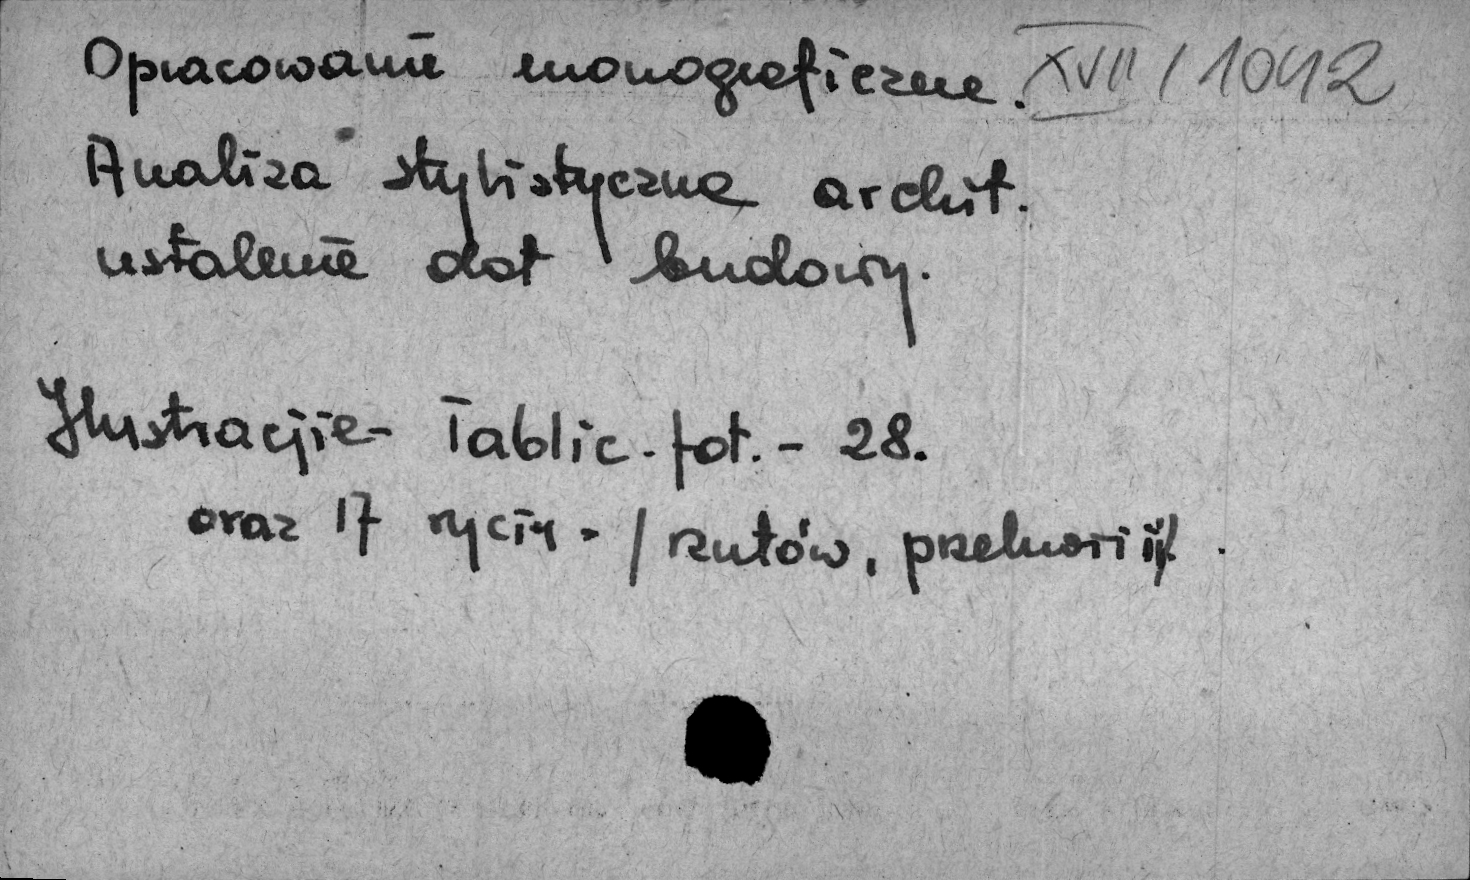 Opracowanie monograficzne. XVII / 1042
Analiza stylistyczna archit.
ustalenie dot budowy.
Ilustracjie - Tablic. fot. - 28.
oraz 17 rycin - / rzutów, przekroi i